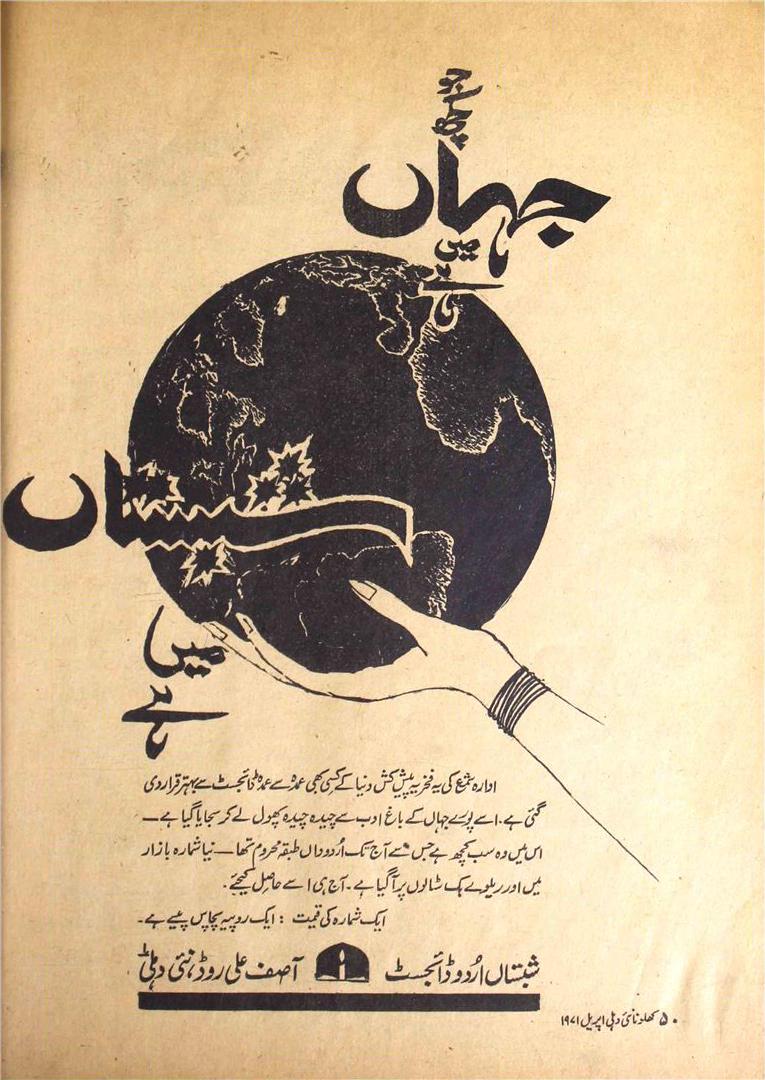 جو کچھ
جہاں
میں
ہے
شبستاں
میں
ہے
ادارہ شمع کی یہ فخریہ پیش کش دنیا کے کسی بھی عمدہ سے عمدہ ڈائجسٹ سے بہتر قرار دی
گئی ہے۔ اسے پورے جہاں کے باغ ادب سے چیدہ چیدہ پھول لے کر سجایا گیا ہے—
اس میں وہ سب کچھ ہے جس سے آج تک اُردو داں طبقہ محروم تھا— نیا شمارہ بازار
میں اور ریلوے بک سٹالوں پر آگیا ہے۔ آج ہی اسے حاصل کیجئے۔
ایک شمارہ کی قیمت : ایک روپیہ پچاس پیسے ہے۔
شبستاں اُردو ڈائجسٹ آصف علی روڈ، نئی دہلی ۱
۵۰ کھلونا نئی دہلی اپریل ۱۹۷۱